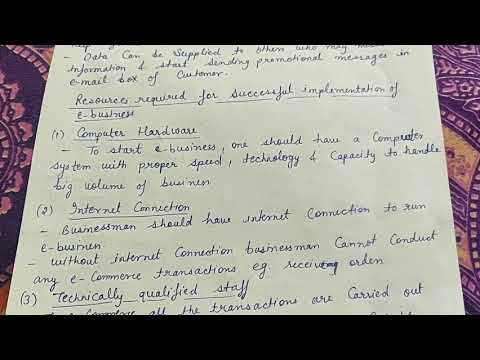 - Data Can be Supplied to others who may
information & start sending promotional messages in
e-mail box of Customer.
Resources required for successful implementation of
e-business
(1) Computer Hardware
- To start e-business, one should have a Computer
system with proper speed, technology & Capacity to handle
big volume of business
(2) Internet Connection
- Businessman should have internet Connection to run
e-business
- without internet Connection businessman Cannot Conduct
any e-Commerce transactions eg. receiving orders
(3) Technically qualified staff
all the transactions are Carried out